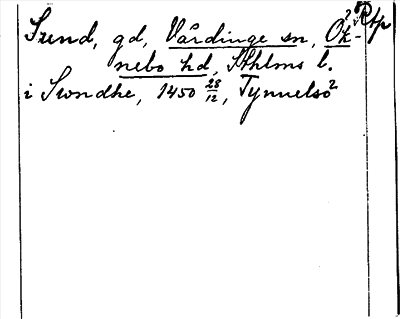 Sund, gd, Vårdinge sn, Ök-
nebo hd, Sthlms l.
i Swndhe, 1450 28/12, Tynnelsö 2